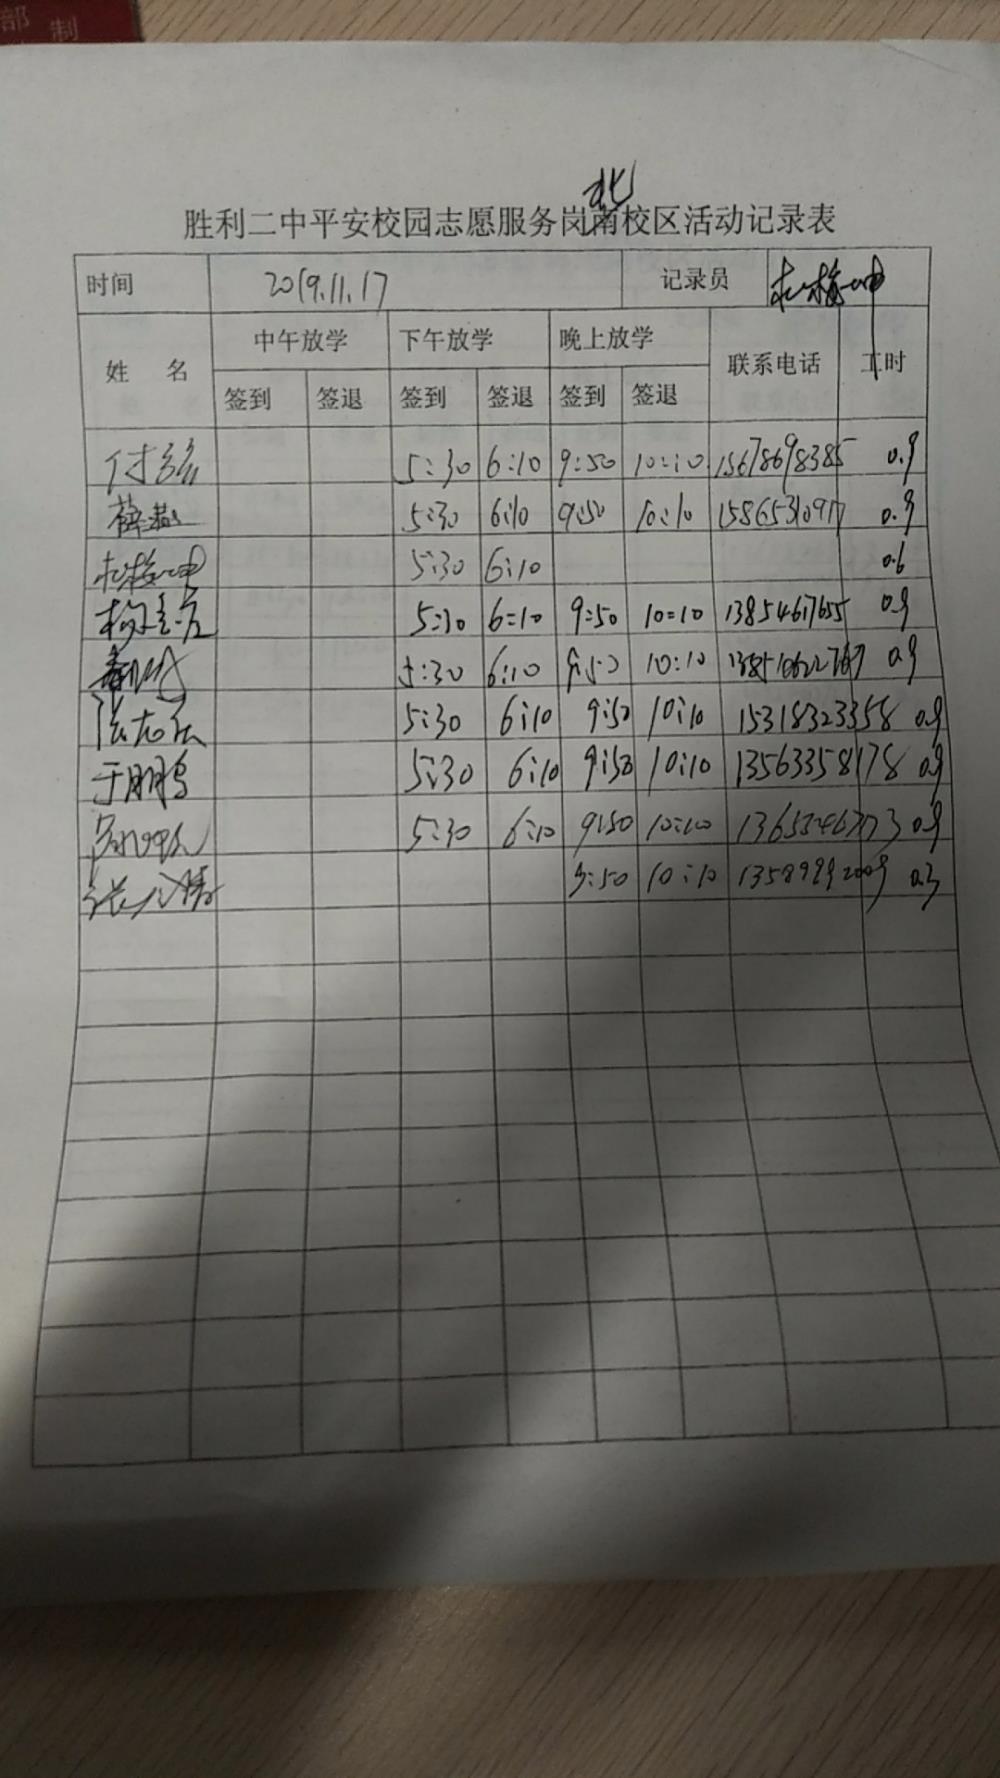 部制
北
胜利二中平安校园志愿服务岗南校区活动记录表
时间 2019.11.17 记录员
姓 名 中午放学 下午放学 晚上放学 联系电话 工时
签到 签退 签到 签退 签到 签退
5:30 6:10 9:50 10:10 15678698385 0.9
5:30 6:10 9:50 10:10 15865310917 0.9
5:30 6:10 0.6
5:30 6:10 9:50 10:10 13854617655 0.9
5:30 6:10 9:50 10:10 0.9
张志兵 5:30 6:10 9:50 10:10 15318323358 0.9
于鹏鸟 5:30 6:10 9:50 10:10 13563358178 0.9
5:30 6:10 9:50 10:10 0.9
9:50 10:10 13589992009 0.3